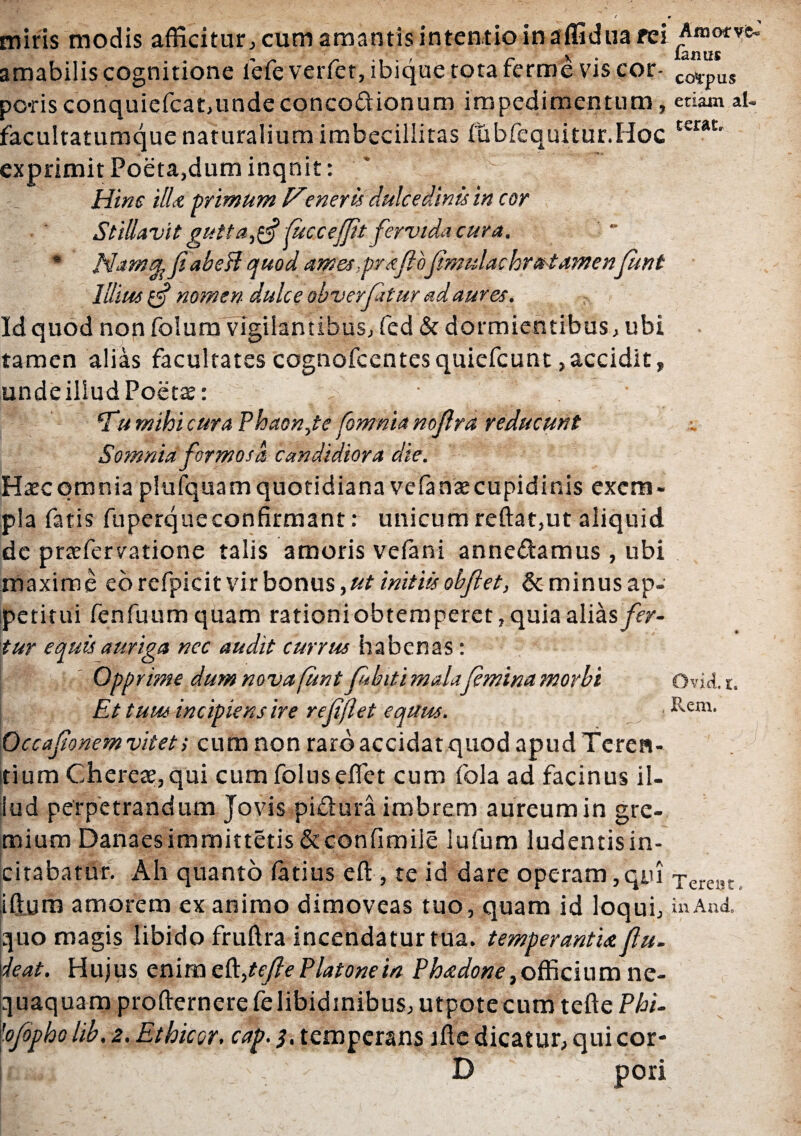 miris modis afficitur, cum amantis intentio in assidua rei
amabilis cognitione sese verset, ibique tota fermè vis cor-
poris conquiescat, unde concoctionum impedimentum,
facultatumque naturalium imbecillitas subsequitur. Hoc
exprimit Poëta, dum inqnit:
Amor ve-
sanus
corpus
etiam al-
terat.
Hinc illæ primum Veneris dulcedinis in cor
Stillavit gutta, & successit fervida cura.
Namq; si abest quod ames, præstò simulachra tamen sunt
Illius & nomen dulce obversatur ad aures.
Id quod non solum vigilantibus, sed & dormientibus, ubi
tamen aliàs facultates cognoscentes quiescunt, accidit,
unde illud Poëtæ:
Tu mihi cura Phaon, te somnia nostra reducunt
Somnia formosâ candidiora die.
Hæc omnia plusquam quotidiana vesanæ cupidinis exem-
pla satis superque confirmant: unicum restat, ut aliquid
de præservatione talis amoris vesani annectamus, ubi
maximè eò respicit vir bonus, ut initiis obstet, & minus ap-
petitui sensuum quam rationi obtemperet, quia aliàs fer-
tur equis auriga nec audit currus habenas:
Opprime dum nova sunt subiti mala semina morbi
Et tuus incipiens ire resistet equus.
Ovid. 1.
Rem.
Occasionem vitet; cum non rarò accidat quod apud Teren-
tium Chereæ, qui cum solus esset cum sola ad facinus il-
lud perpetrandum Jovis picturâ imbrem aureum in gre-
mium Danaes immittētis & consimilē lusum ludentis in-
citabatur. Ah quantò satius est, te id dare operam, quî
istum amorem ex animo dimoveas tuo, quam id loqui,
quo magis libido frustra incendatur tua. temperantiæ stu-
deat. Hujus enim est, teste Platone in Phædone, officium ne-
quaquam prosternere se libidinibus, utpote cum teste Phi-
losopho lib. 2. Ethicor. cap. 3. temperans iste dicatur, qui cor-
Terent.
in And.
D
pori